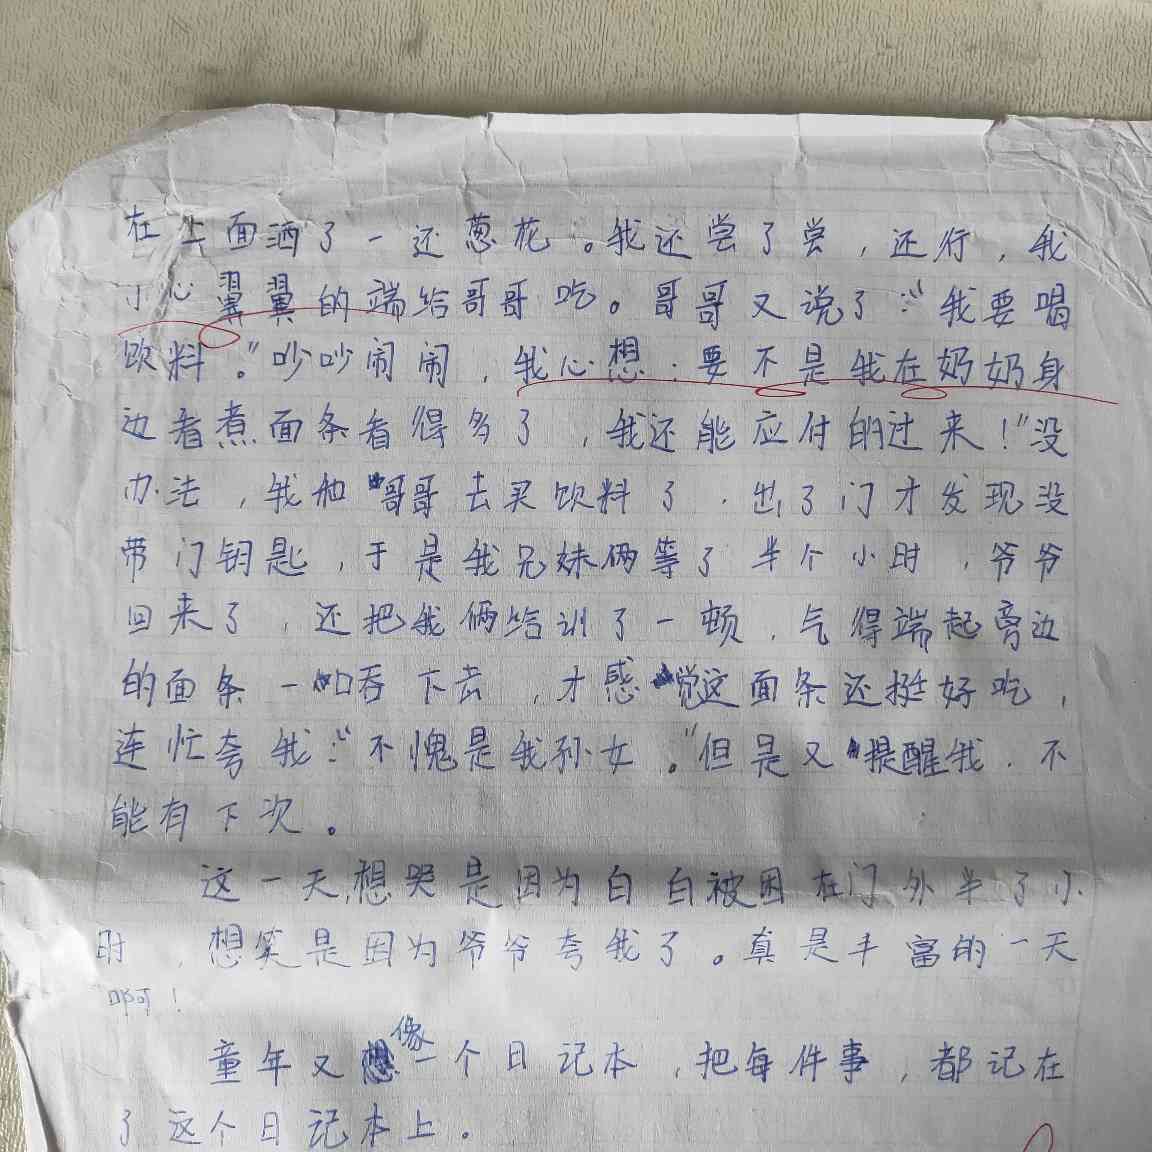 在上面洒了一还葱花。我还尝了尝，还行，我
小心翼翼的端给哥哥吃。哥哥又说了：“我要喝
饮料。”吵吵闹闹，我心想：要不是我在奶奶身
边看煮面条看得多了，我还能应付的过来！”没
办法，我和哥哥去买饮料了，出了门才发现没
带门钥匙，于是我兄妹俩等了半个小时，爷爷
回来了，还把我俩给训了一顿，气得端起旁边
的面条一口吞下去，才感觉这面条还挺好吃，
连忙夸我：“不愧是我孙女。”但是又提醒我，不
能有下次。
这一天，想哭是因为白白被困在门外半了小
时，想笑是因为爷爷夸我了。真是丰富的一天
啊！
童年又像一个日记本，把每件事，都记在
了这个日记本上。